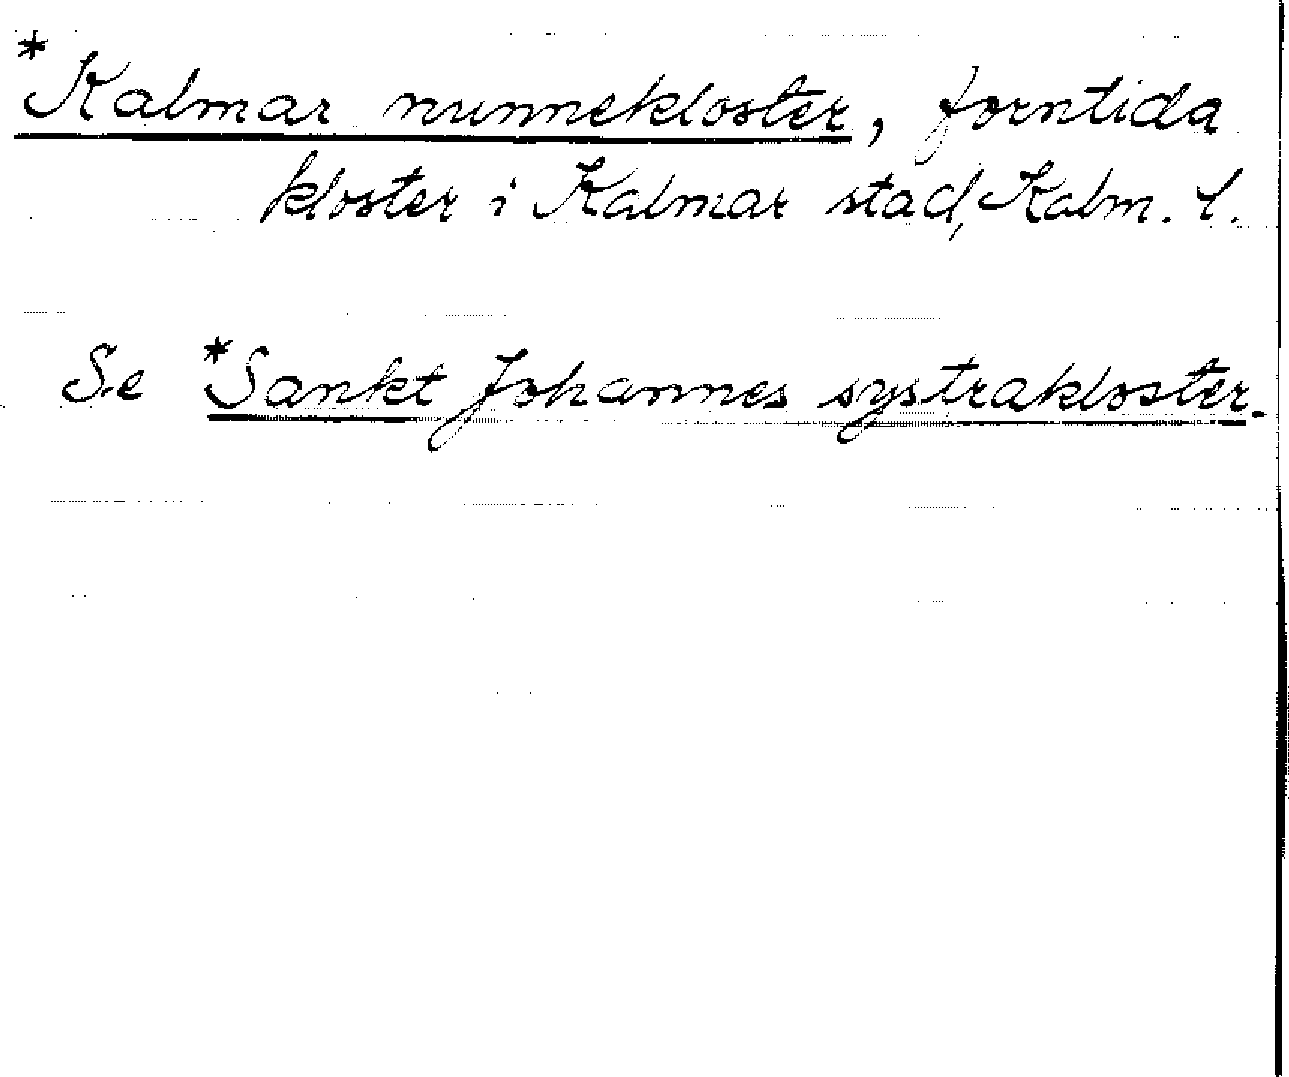 *Kalmar nunnekloster, forntida
kloster i Kalmar stad, Kalm. l.
Se *Sankt Johannes systrakloster.